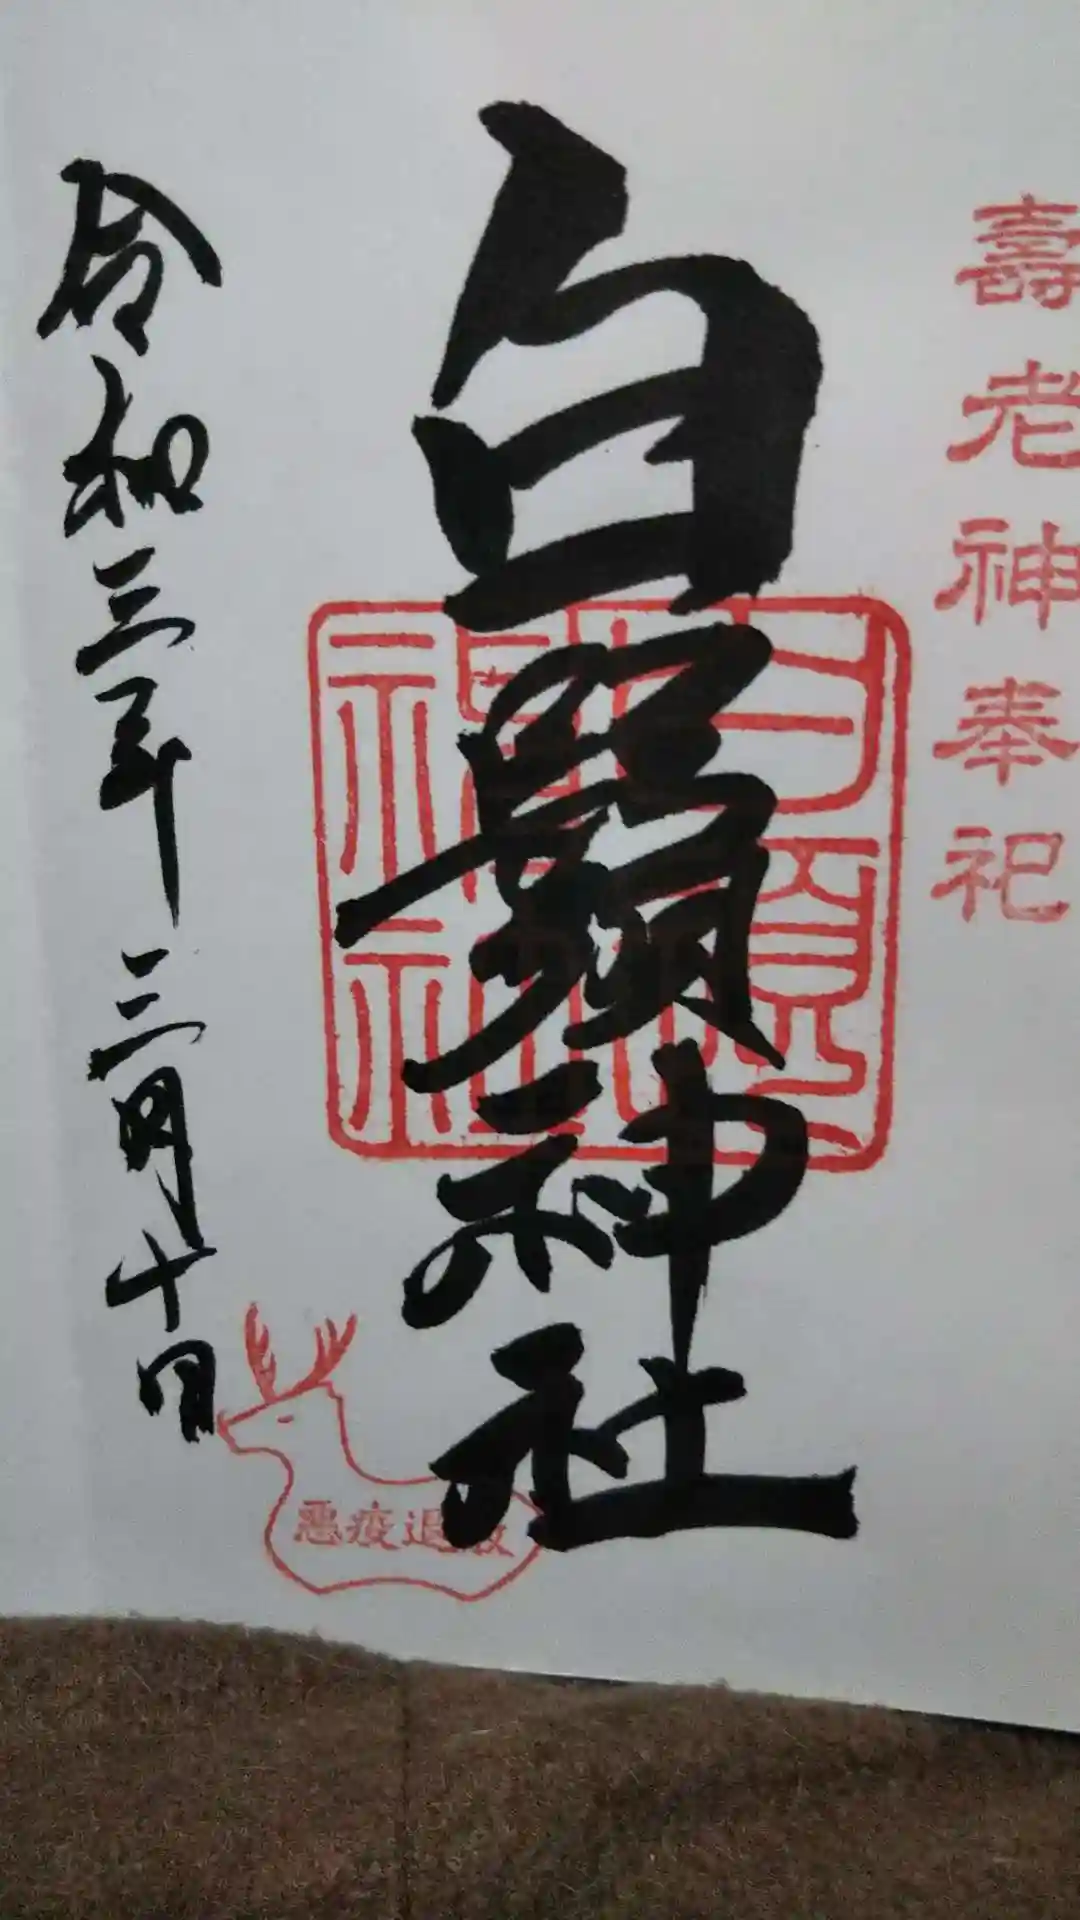 壽老神奉祀
白鬚神社
令和三年三月十日
悪疫退散